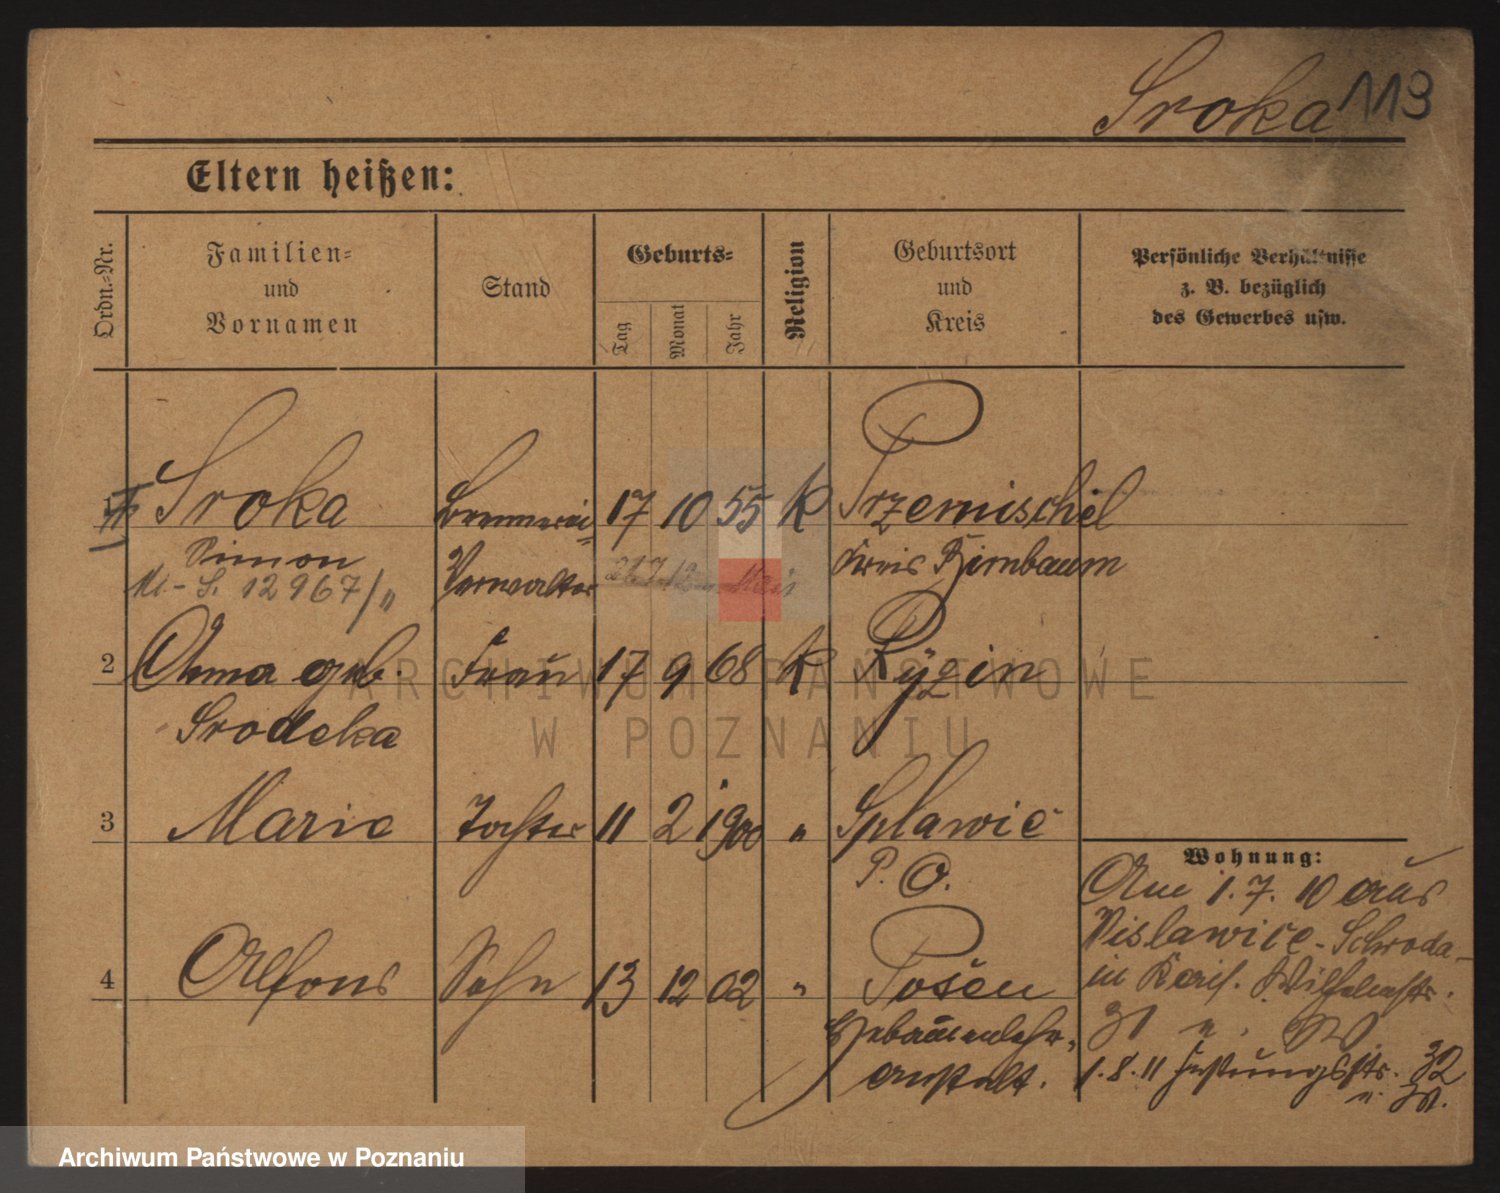 Sroka 113
Eltern heißen:
Ordn.-Nr.
Familien-
und
Vornamen
Stand
Geburts-
Tag
Monat
Jahr
Religion
Geburtsort
und
Kreis
Persönliche Verhältnisse
z. B. bezüglich
des Gewerbes usw.
1 Sroka Brennerei- 17 10 55 K Przemischel
Simon Verwalter Kreis Birnbaum
12967/
2 Anna geb. Frau 17 9 68 K Ryzin
Srodcka
3 Marie Tochter 11 2 1900 " Splawie
P. O.
4 Alfons Sohn 13 12 02 " Posen
Hebammenlehr-
anstalt.
Wohnung:
Am 1. 7. 10 aus
Vislawice-Schroda
in Kais. Wilhelmstr.
31
1. 8. 11 Festungsstr. 32
ARCHIWUM PAŃSTWOWE
W POZNANIU
Archiwum Państwowe w Poznaniu